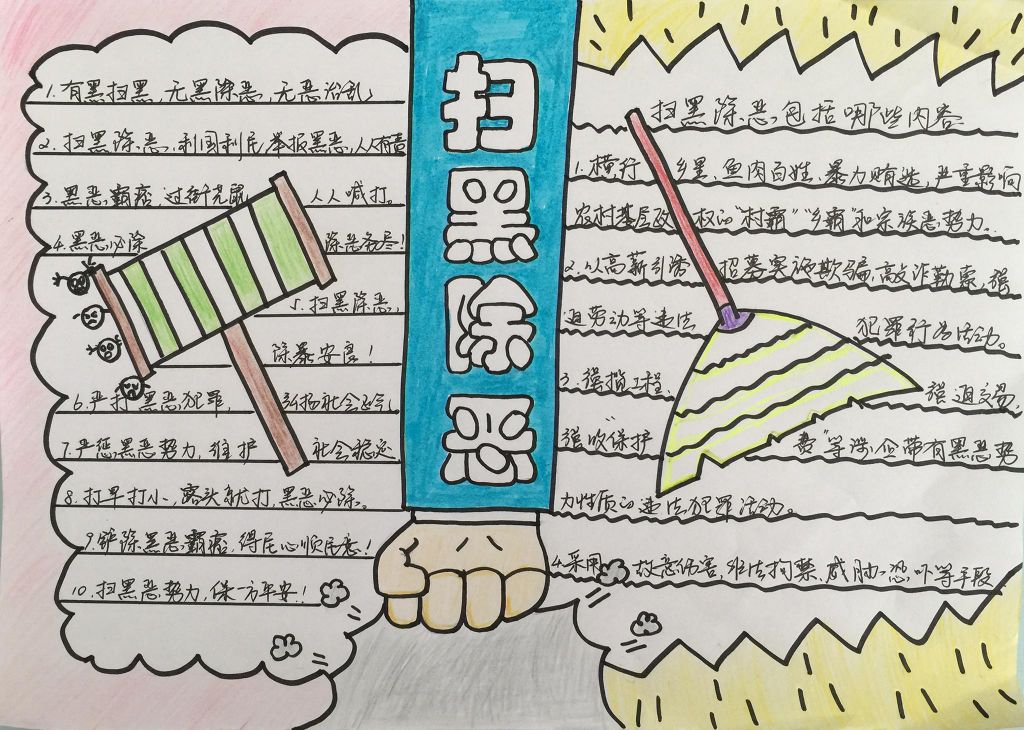 扫黑除恶
1.有黑扫黑,无黑除恶,无恶治乱;
2.扫黑除恶,利国利民,举报黑恶,人人有责
3.黑恶霸痞 过街老鼠 人人喊打。
4.黑恶必除 除恶务尽!
5.扫黑除恶,
除暴安良!
6.严打黑恶犯罪, 弘扬社会正气
7.严惩黑恶势力,维护 社会稳定
8.打早打小,露头就打,黑恶必除。
9.铲除黑恶霸痞,得民心顺民意!
10.扫黑恶势力,保一方平安!
扫黑除恶包括哪些内容
1.横行 乡里、鱼肉百姓、暴力贿选,严重影响
农村基层政 权的“村霸”“乡霸”和宗族恶势力。
2.以高薪引诱 招募实施欺骗,敲诈勒索,强
迫劳动等违法 犯罪行为活动。
3.强揽工程, 强迫交易,
强收“保护 费”等涉 带有黑恶势
力性质的违法犯罪活动。
4.采用 故意伤害,非法拘禁、威胁恐吓等手段